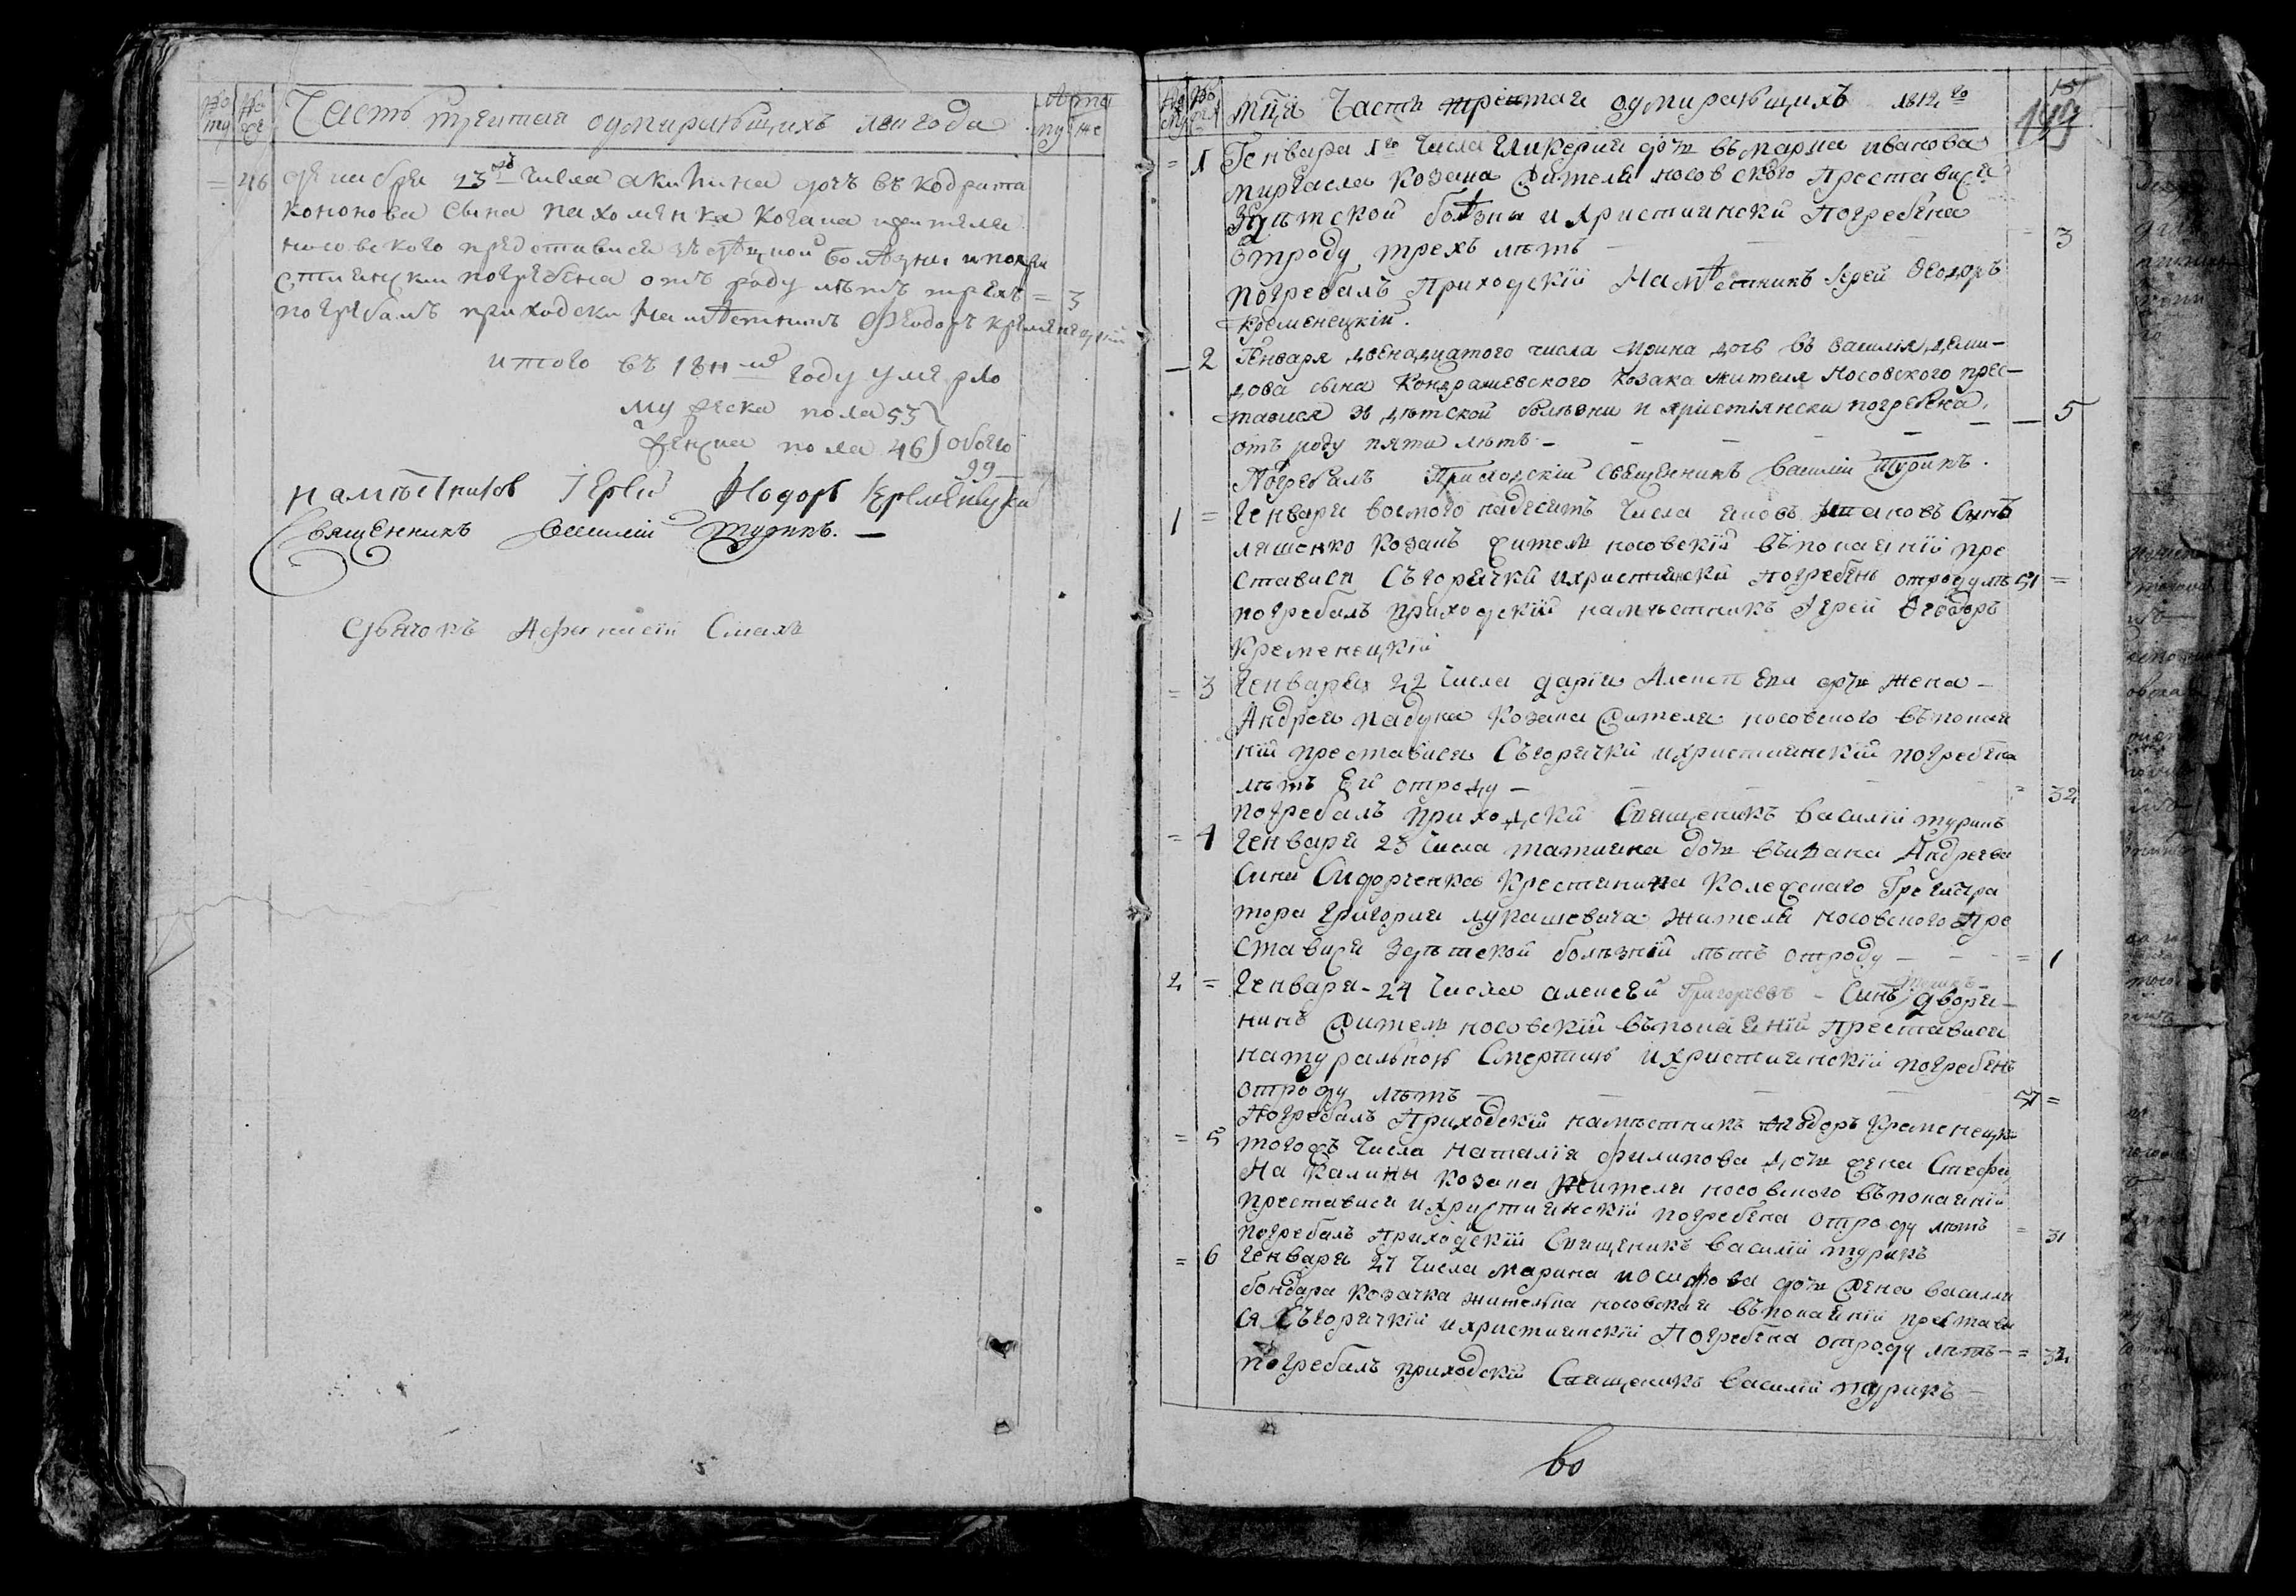 Часть третая оумирающихъ 1811 года
лѣта
му же
46 декабря 23го числа акилина дочь въ кодрата
кононова сына пахоменка козака жителя
носовского представися зъ дѣцкой болѣзни и похри
стиянски погребена отъ роду лѣтъ трехъ = 3
погребалъ приходски намѣстникъ Феодоръ кременецкий
итого въ 1811м году умерло
мужеска пола 53
женска пола 46 } обоего
99
намѣстникъ Іерей Феодоръ Кременецкий
Священникъ Василій Турикъ. —
Дьячокъ Афанасій
Часть третая оумирающихъ 1812го
= 1 Генваря 1го числа Гликерия дочь въ марка иванова
козака жителя носовского Преставися
Зъ дѣтской болѣзни и християнски Погребена
Отроду трехъ лѣтъ — 3
погребалъ Приходскій Намѣстникъ Іерей Феодоръ
Кременецкій.
— 2 Генваря двенадцатого числа Ирина дочь въ василя деми-
дова сына Кондрашевского козака жителя Носовского прес-
тавися зъ дѣтской болѣзни и христіянски погребена.
отъ роду пяти лѣтъ — — 5
Погребалъ Приходскій священникъ Василій Турикъ.
1 = Генваря восмого надесять числа яковъ Сынъ
ляшенко козакъ житель носовскій въ покаяніи пре
ставися Съ горячки и християнски погребенъ отроду лѣ 51 =
погребалъ приходскій намѣстникъ Іерей Феодоръ
Кременецкій
= 3 Генваря 22 числа дария Алексеева дочь жена —
Андрея падуна козака жителя носовского въ покая
ніи преставися Съ горячки и християнскій погребена
лѣтъ Ей отроду — = 32
погребалъ приходски Священикъ василій турикъ
= 4 Генваря 23 числа татияна дочь въ ивана Андреева
Сина Сидорченка Крестянина Колежскаго Грегистра
тора григория лукашевича жителя носовского Пре
ставися зъ дѣтской болѣзній лѣтъ отроду — = 1
2 = Генваря — 24 числа алексѣй Григорьевъ — Синъ дворя-
нинъ житель носовскій въ покаяніи Преставися
натуральною Смертию и християнскій погребенъ
отроду лѣтъ — 57 =
Погребалъ Приходскій намѣстникъ Феодоръ Кременецкій
= 5 тогожъ числа наталія филипова дочь жена Стефа
на Калины козака жителя носовского въ покаяніи
преставися и християнскій погребена отроду лѣтъ = 31
погребалъ Приходскій Священикъ василій турикъ
= 6 Генваря 27 числа марина иосифова дочь жена василя
бондара козачка жителька носовская въ покаяніи престави
ся Съ горячкій и християнскій Погребена отроду лѣтъ — = 32
погребалъ приходскій Священикъ василій турикъ —
во